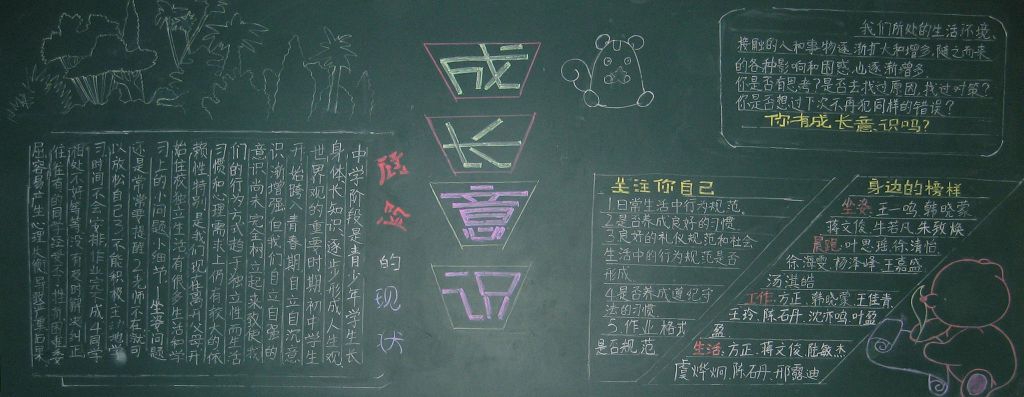 成
长
意
识
我们所处的生活环境、
接触的人和事物逐渐扩大和增多,随之而来
的各种影响和困惑也逐渐增多.
你是否有思考?是否去找过原因,找过对策?
你是否想过下次不再犯同样的错误?
你有成长意识吗?
的现状
中学阶段是青少年学生长
身体长知识、逐步形成人生观
世界观的重要时期.初中学生
开始跨入青春期,自立自沉意
识渐增强但我们自立自强的
意识尚未完全树立起来.致使我
们的行为方式趋于独立性而生活
习惯和心理需求上仍有较大的依
赖性.特别是我们现在离开父母开
始在校独立生活有很多生活和学
习上的小问题小细节.坐姿问题
还是常常要提醒?老师不在就可
以放松自己了?不能积极主动地学
习.时间不会安排.作业完不成.4同学
相处不好等等没有及时解决纠正
往往有的同学经受不
屈容易产生心理
关注你自己
1.日常生活中行为规范。
2.是否养成良好的习惯.
3.良好的礼仪规范和社会
生活中的行为规范是否
形成
4.是否养成遵纪守
法的习惯.
5.作业格式
是否规范
身边的榜样
坐姿:王一鸣,韩晓蒙
蒋文俊,牛若凡,朱敦焕
晨跑:叶思瑶,徐清怡
徐海雯,杨泽峰,王嘉盛
汤淇皓
工作:方正,韩晓蒙,王佳青
王玲,陈石丹,沈亦鸣,叶盈
盈
生活:方正,蒋文俊,陆敏杰
虞烨炯,陈石丹,邢露迪